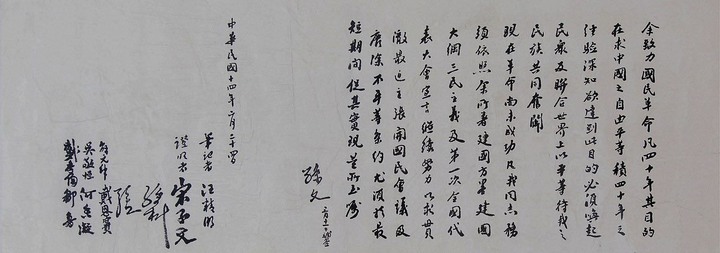 余致力國民革命凡四十年其目的
在求中國之自由平等積四十年之
經驗深知欲達到此目的必須喚起
民眾及聯合世界上以平等待我之
民族共同奮鬭
現在革命尚未成功凡我同志務
須依照余所著建國方畧建國
大綱三民主義及第一次全國代
表大會宣言繼續努力以求貫
澈最近主張開國民會議及
廢除不平等條約尤須於最
短期間促其實現是所至囑
孫文 三月十一日補簽
中華民國十四年二月二十四日
筆記者 汪精衛
證明者 宋子文
孫科
邵元冲 戴恩賽
吳敬恒 何香凝
戴季陶 鄒魯